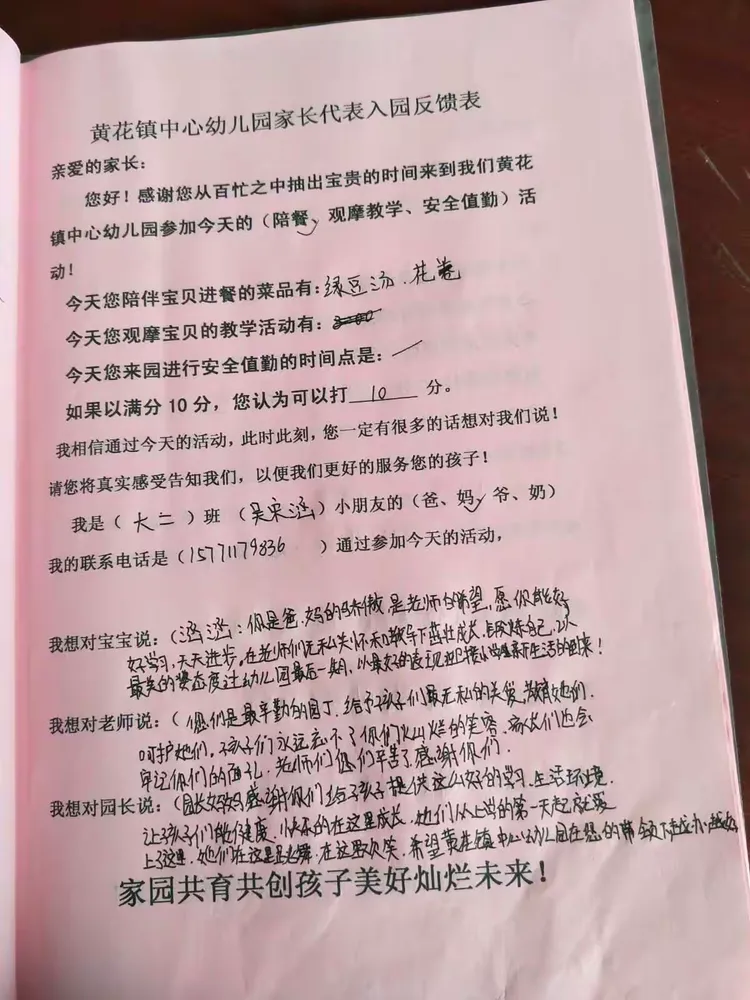 黄花镇中心幼儿园家长代表入园反馈表
亲爱的家长：
您好！感谢您从百忙之中抽出宝贵的时间来到我们黄花
镇中心幼儿园参加今天的（陪餐、观摩教学、安全值勤）活
动！
今天您陪伴宝贝进餐的菜品有：绿豆汤、花卷
今天您观摩宝贝的教学活动有：
今天您来园进行安全值勤的时间点是：
如果以满分 10 分，您认为可以打 10 分。
我相信通过今天的活动，此时此刻，您一定有很多的话想对我们说！
请您将真实感受告知我们，以便我们更好的服务您的孩子！
我是（大二）班（吴 涵）小朋友的（爸、妈、爷、奶）
我的联系电话是（15771179836）通过参加今天的活动，
我想对宝宝说：（涵涵：你是爸、妈的骄傲，是老师的希望，愿你能好
好学习，天天进步。在老师们无私关怀和教导下茁壮成长，锻炼自己，以
最美的姿态度过幼儿园最后一期，以最好的表现迎接小学 新生活的到来！
我想对老师说：（您们是最辛勤的园丁，给予孩子们最无私的关爱，教育她们，
呵护她们，孩子们永远忘不了你们灿烂的笑容，家长们也会
牢记你们的面孔，老师们您们辛苦了，感谢你们．
我想对园长说：（园长妈妈感谢你们给孩子提供这么好的学习、生活环境，
让孩子们能健康、快乐的在这里成长，她们从上学的第一天起就爱
上了这里，她们在这里 舞，在这里欢笑，希望黄花镇中心幼儿园在您的带领下越办越好
家园共育共创孩子美好灿烂未来！